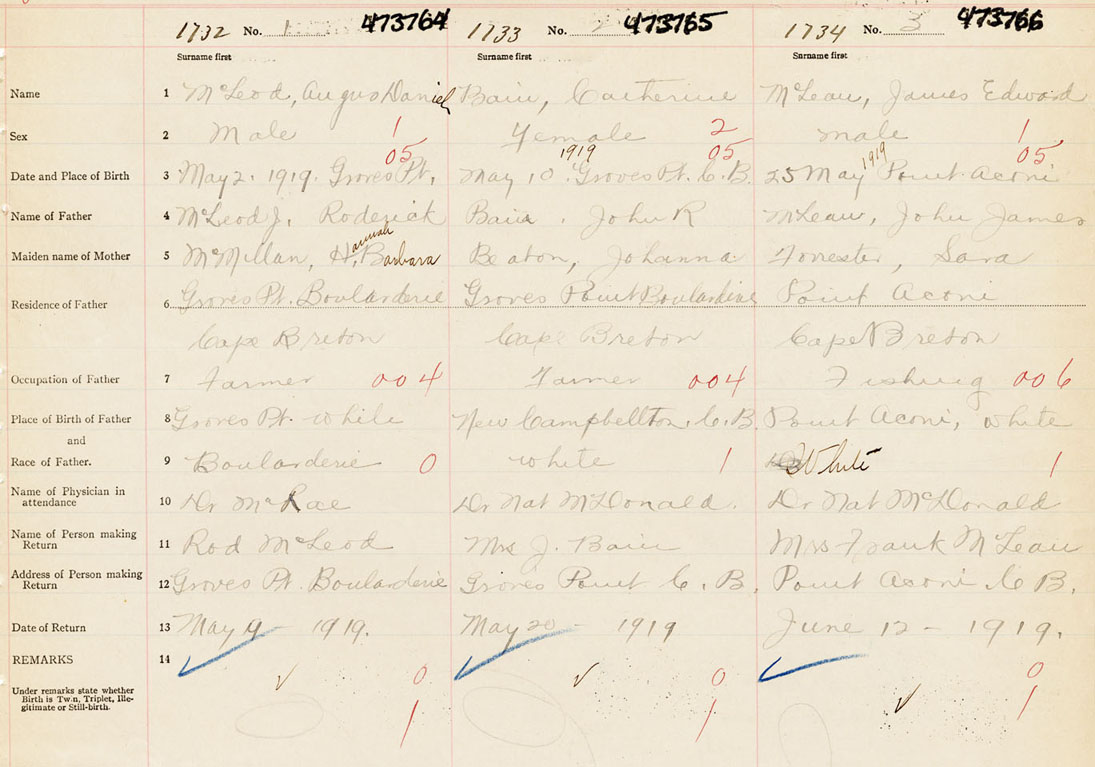 1732 No. 1 473764 1733 No. 2 473765 1734 No. 3 473766
Surname first Surname first Surname first
Name 1 McLeod, Angus Daniel Bain, Catherine McLean, James Edward
Sex 2 Male 1 Female 2 male 1
05 1919 05 1919 05
Date and Place of Birth 3 May 2. 1919. Groves Pt. May 10. Groves Pt. C. B. 25 May Point Aconi
Name of Father 4 McLeod J. Roderick Bain, John R McLean, John James
Maiden name of Mother 5 McMillan, Hannah, Barbara Beaton, Johanna Forrester, Sara
Residence of Father 6 Groves Pt. Boularderie Groves Point Boulardine Point Aconi
Cape Breton Cape Breton Cape Breton
Occupation of Father 7 Farmer 004 Farmer 004 Fishing 006
Place of Birth of Father 8 Groves Pt. white New Campbellton, C. B. Point Aconi, white
and
Race of Father. 9 Boularderie 0 white 1 White 1
Name of Physician in attendance 10 Dr McRae Dr Nat McDonald. Dr Nat McDonald
Name of Person making Return 11 Rod McLeod Mrs J. Bain Mrs Frank McLean
Address of Person making Return 12 Groves Pt. Boularderie Groves Point C. B. Point Aconi C B.
Date of Return 13 May 19 - 1919. May 20 - 1919 June 12 - 1919.
REMARKS 14 0 0 0
Under remarks state whether Birth is Twin, Triplet, Ille-
gitimate or Still-birth. 1 1 1